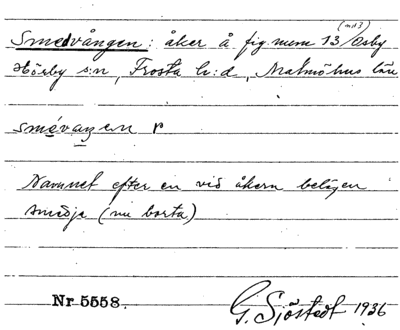 Smedvången: åker å fig num 13 (md3) / Osby
Hörby s:n, Frosta h:d, Malmöhus län
smévaŋen r
Namnet efter en vid åkern belägen
smedja (nu borta)
Nr 5558. G. Sjöstedt 1936